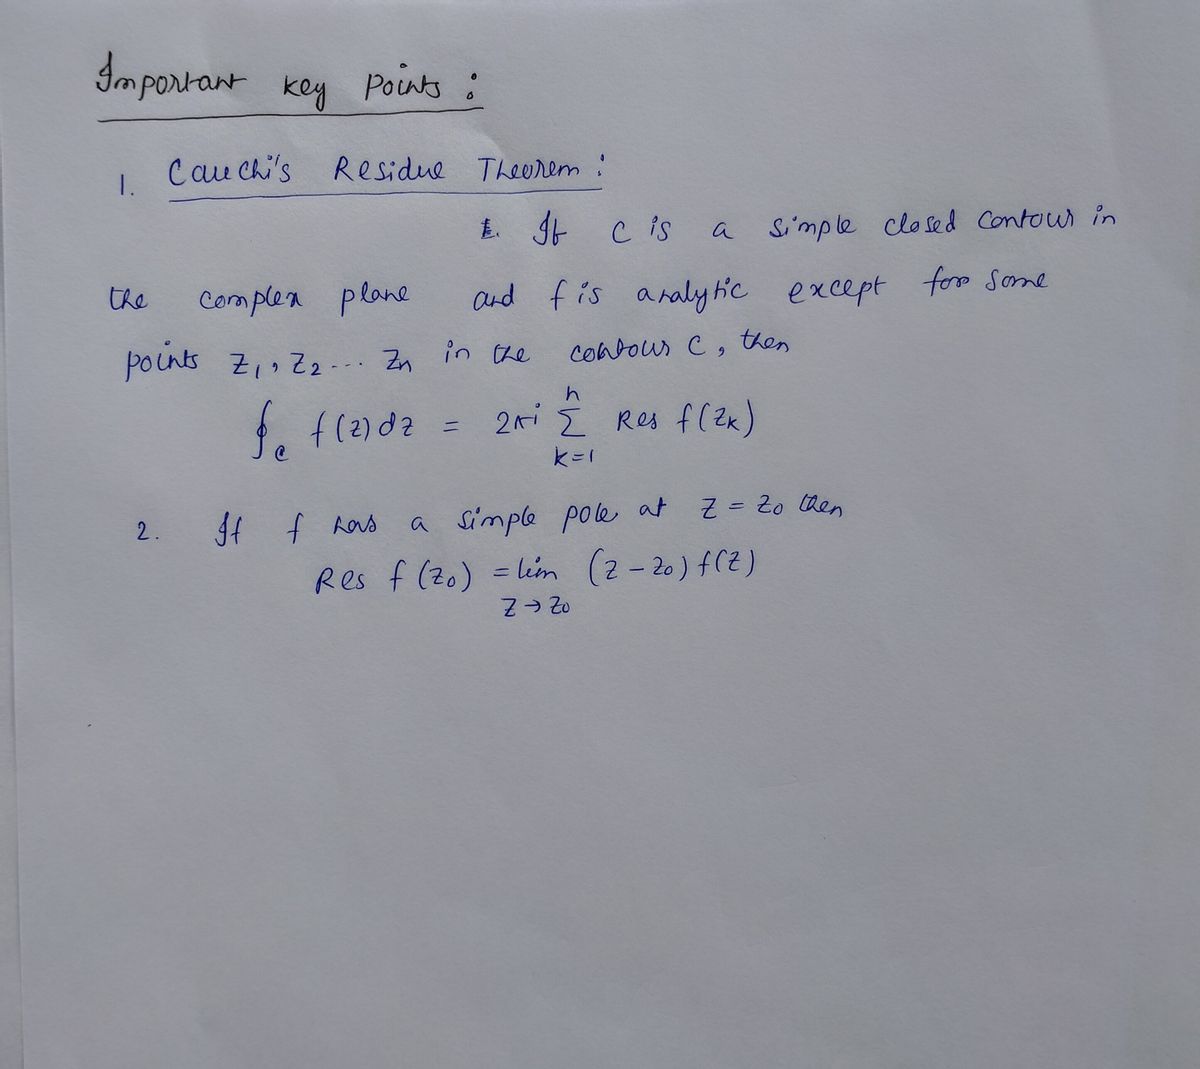 Important key points :
1. Cauchi's Residue Theorem :
If C is a simple closed contour in
the complex plane and f is analytic except for some
points z₁, z₂ ... zₙ in the contour C, then
∮_C f(z) dz = 2πi Σ_{k=1}^{n} Res f(z_k)
2. If f has a simple pole at z = z₀ then
Res f(z₀) = lim (z - z₀) f(z)
z → z₀